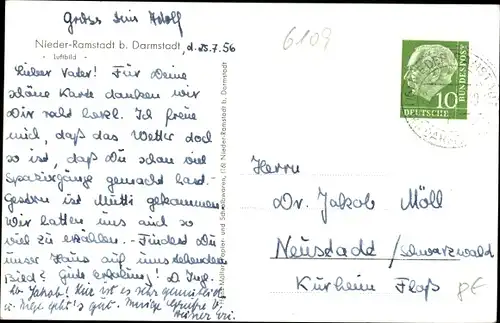 Gruss Dein Adolf
6109
Nieder-Ramstadt b. Darmstadt, d. 25.7.56
- Luftbild -
Lieber Vater! Für Deine
schöne Karte danken wir
Dir recht herzl. Ich freue
mich, daß das Wetter doch
so ist, daß Du schon viel
Spaziergänge gemacht hast.
Gestern ist Mutti gekommen.
Wir hatten uns auch so
viel zu erzählen. - Findest Du
unser Haus auf umstehendem
Bild? Gute Erholung! D. Inge.
Lb. Jakob! Hier ist es sehr gemütlich
u. Inge geht's gut.
Nieder-Ramstadt b. Darmstadt
DEUTSCHE BUNDESPOST
10
Herrn
Dr. Jakob Möll
Neustadt/Schwarzwald
Kurheim
8€